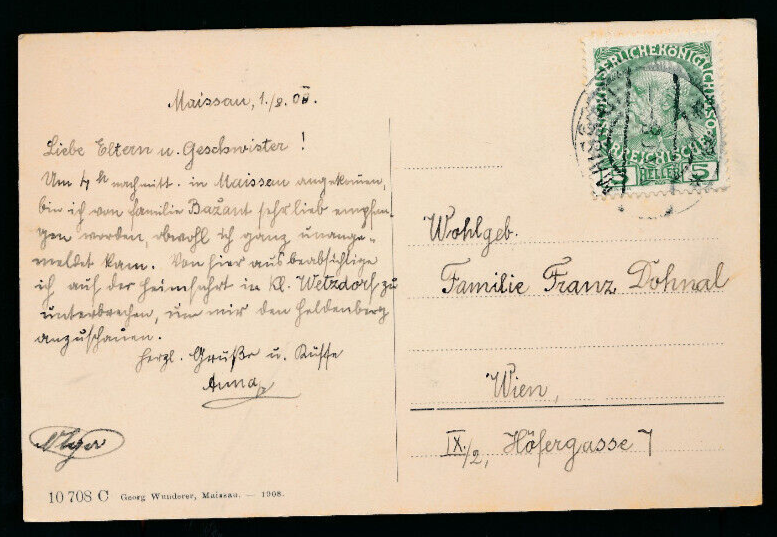 Maissau, 1./8. 08.
Liebe Eltern u. Geschwister!
Um 4 h nachmitt. in Maissau angekommen,
bin ich von Familie Bažant sehr lieb empfan-
gen worden, obwohl ich ganz unange-
meldet kam. Von hier aus beabsichtige
ich auf der Heimfahrt in Kl. Wetzdorf zu
unterbrechen, um mir den Heldenberg
anzuschauen.
Herzl. Grüße u. Küsse
Anna
10 708 C Georg Wunderer, Maissau. — 1908.
KAISERLICHE KÖNIGLICHE
ÖSTERREICHISCHE
5 HELLER 5
Wohlgeb.
Familie Franz Dohnal
Wien,
IX./2, Höfergasse 7